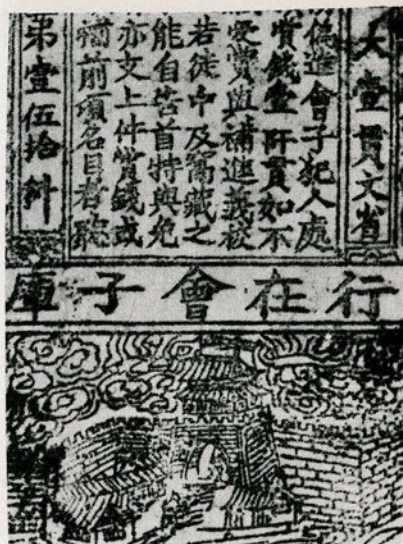 大壹貫文省
僞造會子犯人處
賞錢壹阡貫如不
受賞與補進義校
若徒中及窩藏之
能自告首特與免
亦支上件賞錢或
補前項名目者聽
第壹伍拾料
行在會子庫